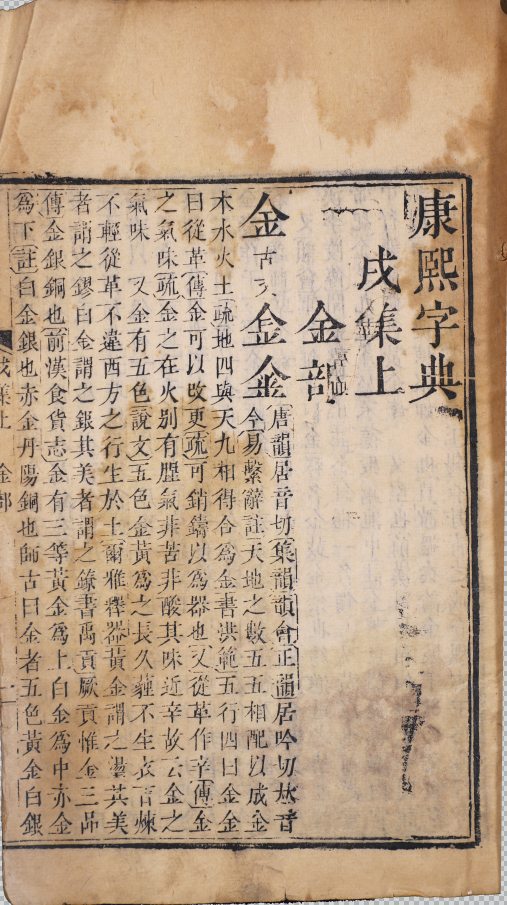 康熙字典
戌集上
金部
金古文金金
唐韻居音切集韻韻會正韻居吟切𠀤音
今易繫辭註天地之數五五相配以成金
木水火土疏地四與天九相得合爲金書洪範五行四曰金金
曰從革傳金可以改更疏可銷鑄以爲器也又從革作辛傳金
之氣味疏金之在火別有腥氣非苦非酸其味近辛故云金之
氣味 又金有五色說文五色金黃爲之長久薶不生衣百煉
不輕從革不違西方之行生於土爾雅釋器黃金謂之璗其美
者謂之鏐白金謂之銀其美者謂之鐐書禹貢厥貢惟金三品
傳金銀銅也前漢食貨志金有三等黃金爲上白金爲中赤金
爲下註白金銀也赤金丹陽銅也師古曰金者五色黃金白銀
戌集上 金部